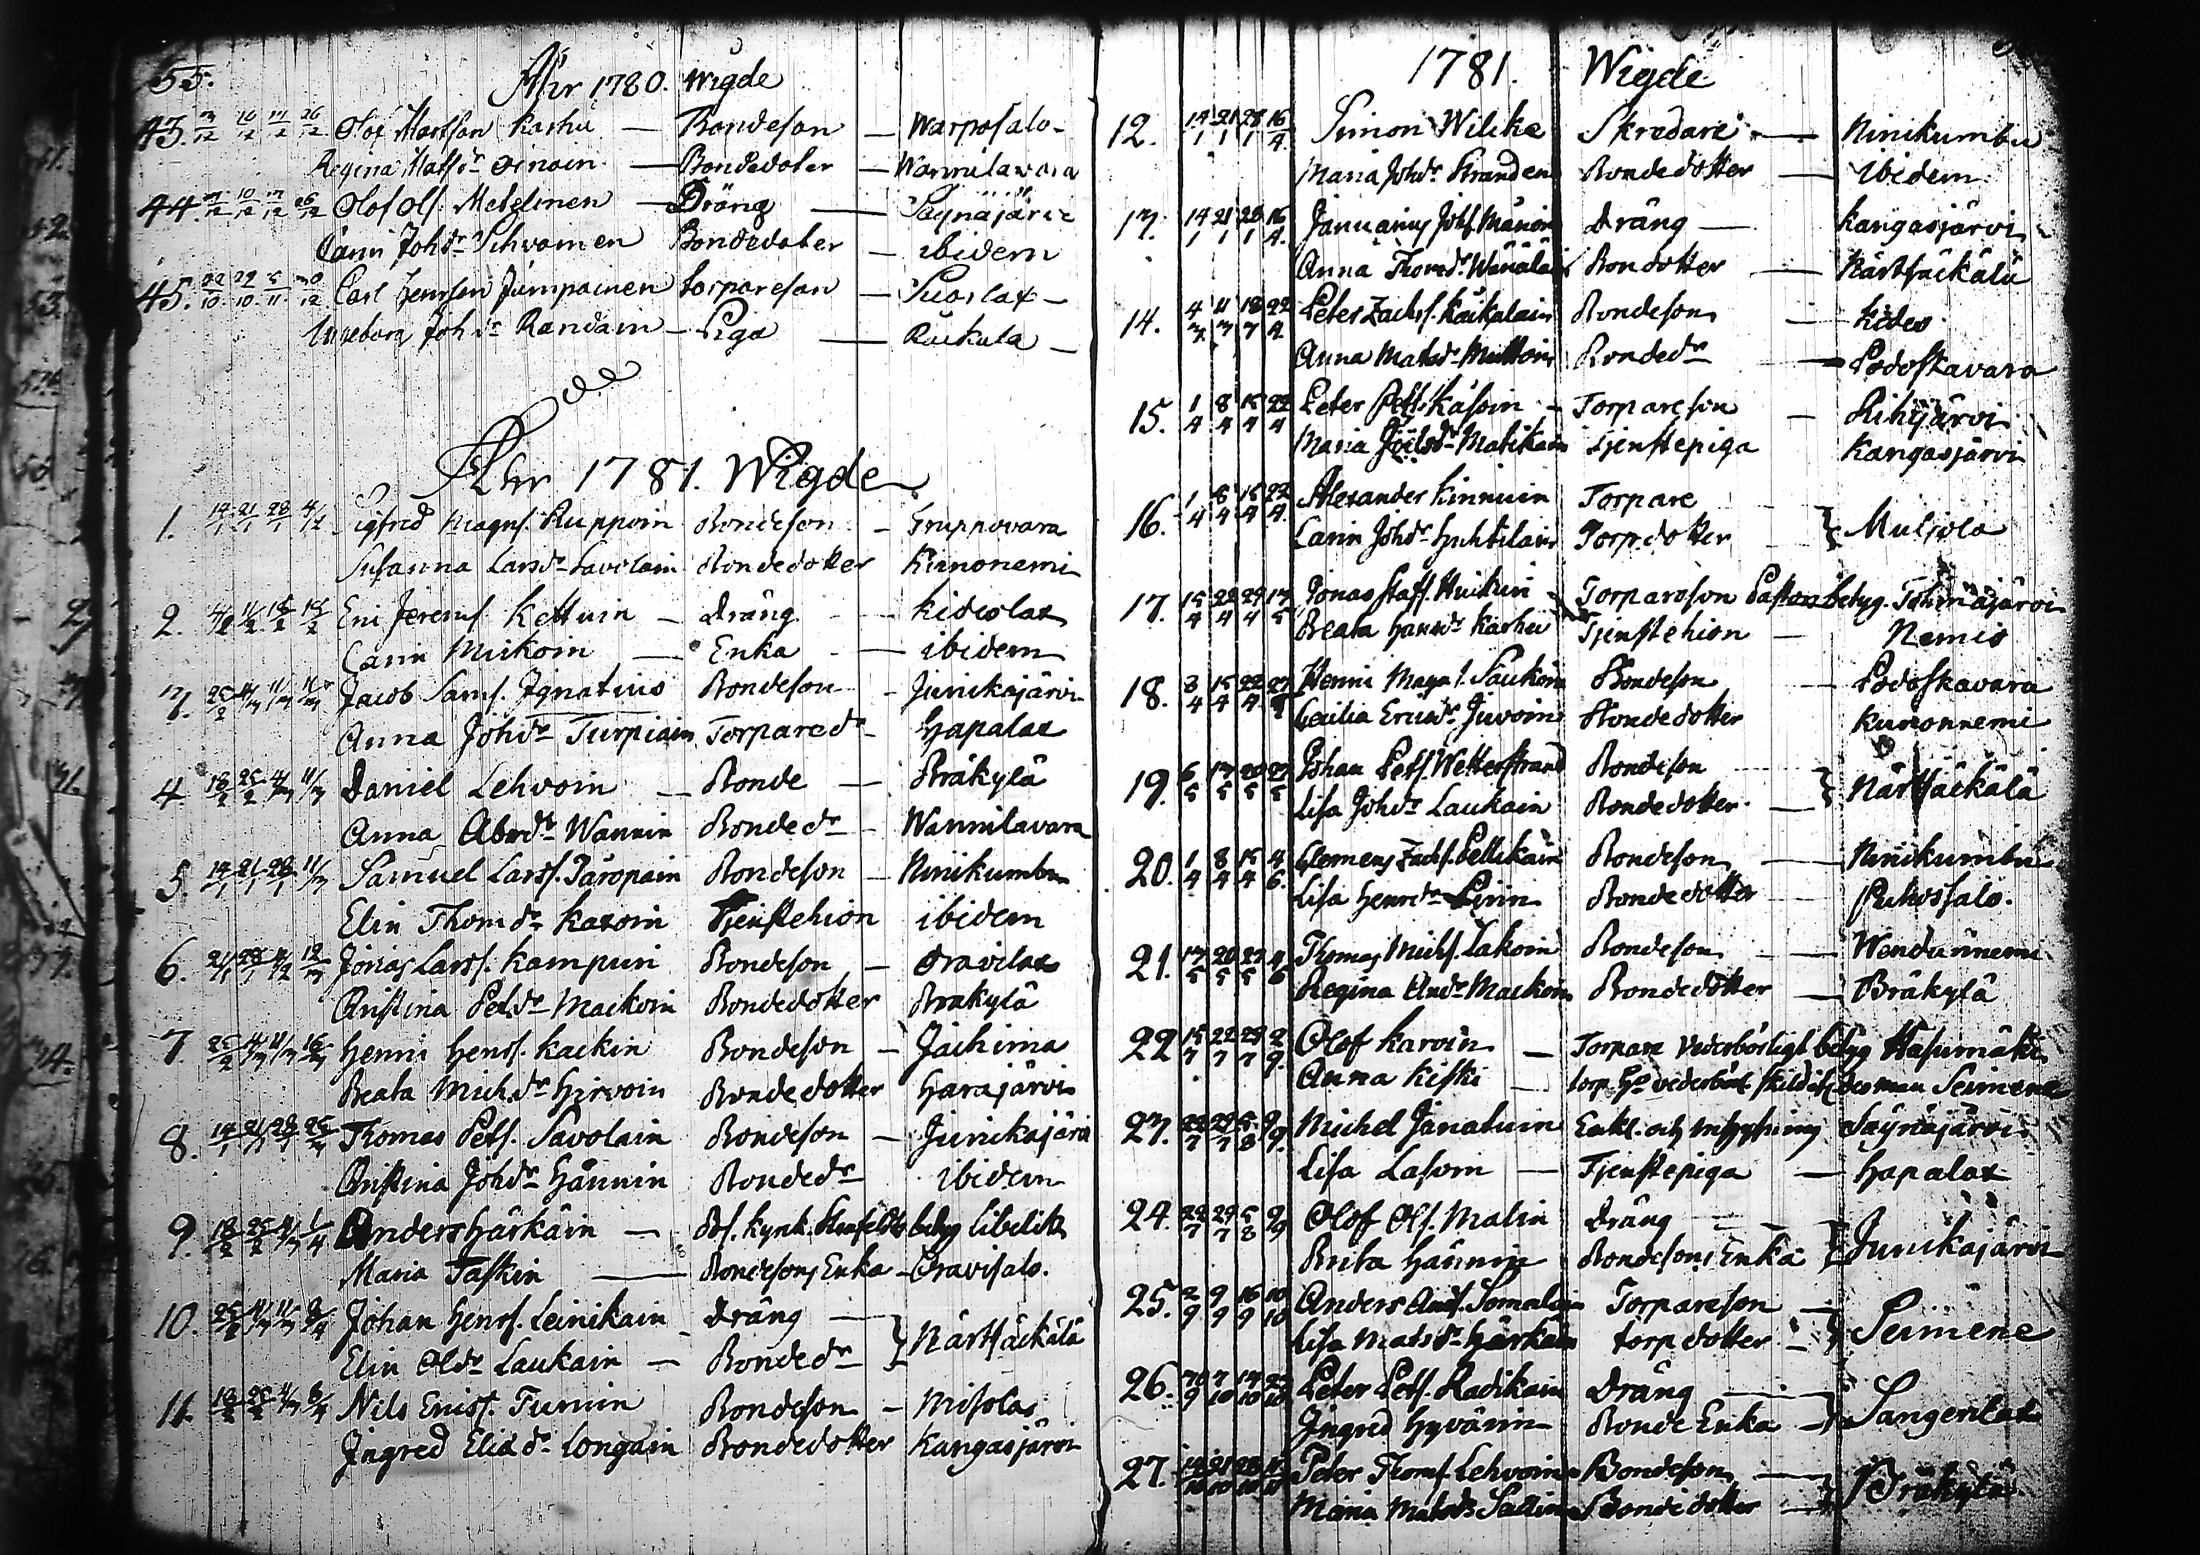 55.
Åhr 1780. Wigde
43. 3/12 10/12 17/12 26/12 Olof Mattson Karhu — Bondeson — Warpasalo
Regina Matsdr — Bondedoter — Wannilawara
44. 3/12 10/12 17/12 26/12 Olof Olf. — Dräng — Säynäjärvi
Carin Johdr Sihvoinen Bondedoter — ibidem
45. 22/10 29/10 5/11 Carl Henrson Jumpainen torpareson — Suorlax
Ingeborg Johdr Randain — Piga — Räckylä
Åhr 1781. Wigde
1. 14/1 21/1 28/1 4/12 Sigfred Magns. Ruppoin Bondeson — Gruppovara
Susanna Larsdr Savolain Bondedotter Kunonemi
2. 4/2 11/2 18/2 18/2 Eric Jeremf. Kettuin — Dräng — Kideslax
Carin Mickoin — Enka — ibidem
3. 25/2 4/3 11/3 11/3 Jacob Sams. Ignatius Bondeson — Junikajärvi
Anna Johdr Turpiain Torparedr — Hapalax
4. 18/2 25/2 4/3 11/3 Daniel Lehvoin — Bonde — Bräkylä
Anna Abrdr Wannin Bondedr — Wannilavara
5. 14/1 21/1 28/1 11/3 Samuel Larss. Päropain Bondeson — Ninikumbu
Elin Thomdr Karoin Tjenstehion ibidem
6. 21/1 28/1 2/2 12/3 Jonas Larss. Kampuri Bondeson — Oravilax
Christina Petdr Mackoin Bondedotter Bräkylä
7. 25/2 4/3 11/3 Henric Henrs. Kackin Bondeson — Jachima
Beata Michdr Hirvoin Bondedotter Harajärvi
8. 14/1 21/1 28/1 25/3 Thomas Pets. Savolain Bondeson — Junikajärvi
Christina Johdr Hännin Bondedr ibidem
9. 18/2 25/2 4/3 1/4 Anders Härkäin — betyg Libelits
Maria Taskin — Bondesons Enka — Oravisalo.
10. 25/2 4/3 11/3 8/4 Johan Henrs. Leinikain — Dräng — } Närtsäckälä
Elin Oldr Laukain — Bondedr
11. 18/2 25/2 4/3 8/4 Nils Erics. Turuin Bondeson — Misolax
Ingred Eliædr Longain Bondedotter Kangasjärvi
1781. Wigde
12. 14/1 21/1 28/1 16/4 Simon Wilska Skredare — Ninikumbu
Maria Johdr Stranden Bondedotter — ibidem
13. 14/1 21/1 28/1 16/4 Januarius Johs. Mänoin Dräng — Kangasjärvi
Anna Thomdr Wänäläin Bondotter — Närtsäckälä
14. 4/3 11/3 18/3 22/4 Peter Zachs. Kaikalain Bondeson — Kides
Anna Matsdr Muttoin Bondedr — Podoskavara
15. 1/4 8/4 15/4 22/4 Peter Pets. Käsoin — Torpareson — Rihijärvi
Maria Joelsdr Matikain Tjenstepiga Kangasjärvi
16. 1/4 8/4 15/4 22/4 Alexander Kinnuin Torpare } Muljola
Carin Johdr Huhtilain Torp.dotter
17. 15/4 22/4 29/4 13/5 Jonas Staff. Torpareson betyg. Tohmajärvi
Beata Hansdr Karhu Tjenstehion — Nemis
18. 8/4 15/4 22/4 Henric Magn. Saukoin Bondeson — Podoskavara
Cecilia Ericsdr Juvoin Bondedotter Kunonnemi
19. 6/5 13/5 20/5 27/5 Johan Pets. Wetterstrand Bondeson } Närtsäckälä
Lisa Johdr Laukain Bondedotter
20. 1/4 8/4 15/4 4/6 Clemens Zachs. Pellikain Bondeson — Ninikumbu
Lisa Henrdr Bondedotter Puhossalo.
21. 13/5 20/5 27/5 4/6 Thomas Michs. Lakoin Bondeson — Wendunnemi
Regina Andr Mackoin Bondedotter — Bräkylä
22 15/7 22/7 29/7 2/9 Olof Karoin — Torpare vederbörligt betyg
Anna Kiski — Seimene
23. 22/7 29/7 5/8 9/9 Michel Janatuin Enkl. och Säynäjärvi
Lisa Lasoin — Tjenstepiga — Hapalax
24. 22/7 29/7 5/8 9/9 Olof Ols. Malin Dräng } Junikajärvi
Brita Hännin Bondesons Enka
25. 2/9 9/9 16/9 10/10 Anders Ands. Somalain Torpareson } Seimene
Lisa Matsdr Härkäin torpdotter
26. 30/9 7/10 14/10 Peter Pets. Radikain Dräng } Sangerilax
Ingred Hyvärin Bonde Enka
27. 14/10 21/10 28/10 Peter Thoms. Lehvoin Bondeson } Bräkylä
Maria Matsdr Bondedotter